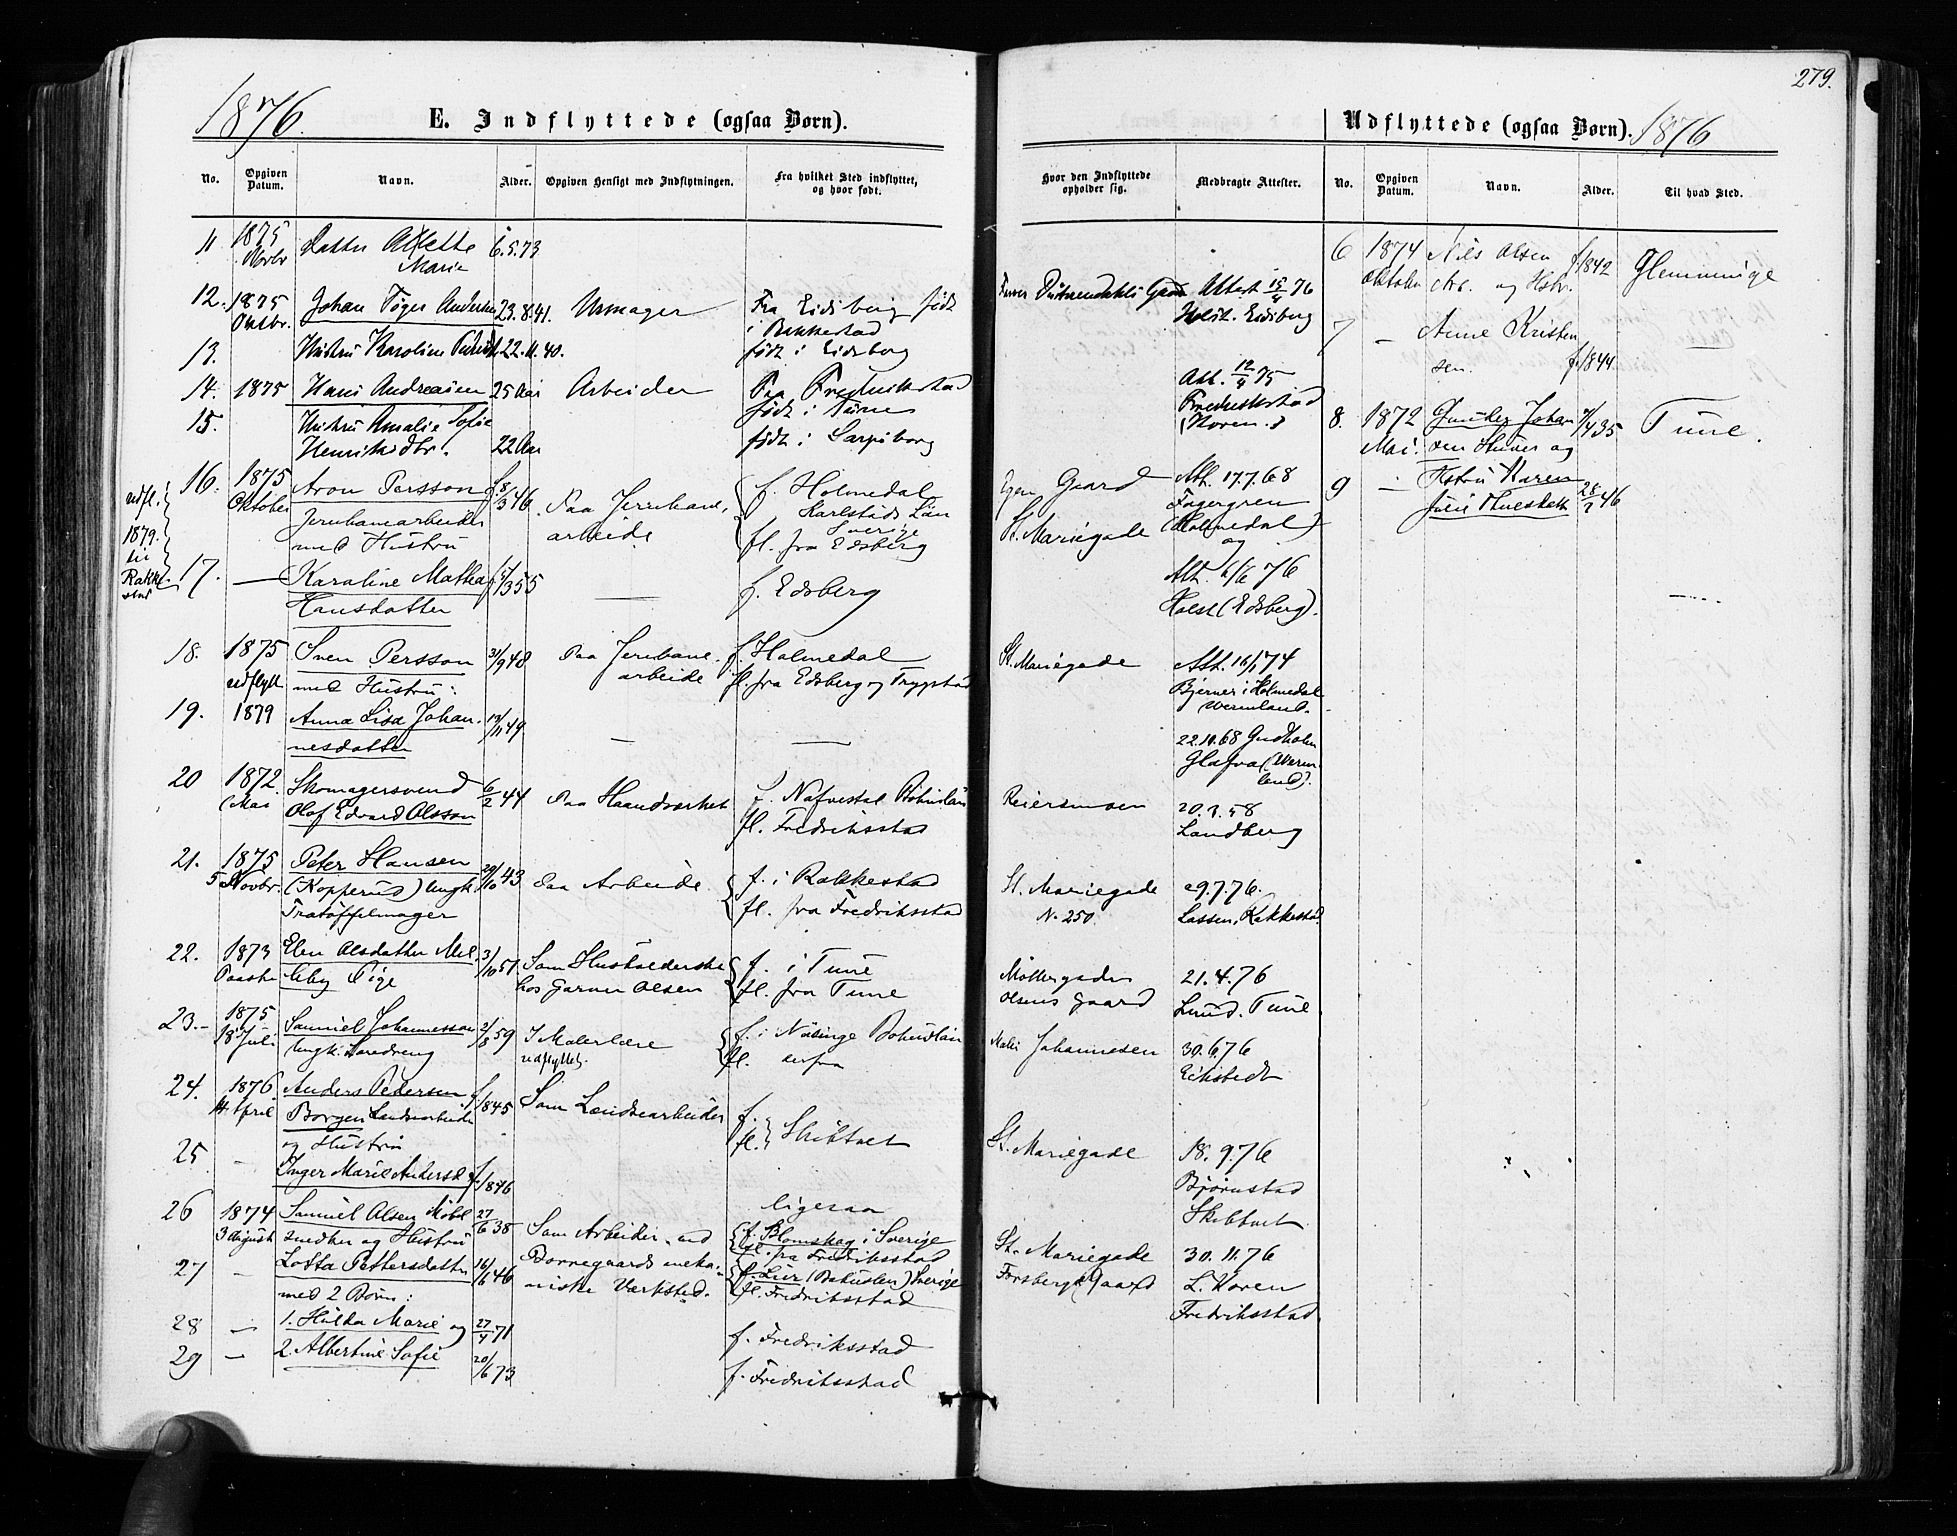 279.
1876.
E. Indflyttede (ogsaa Børn).
No.
Opgiven Datum.
Navn.
Alder.
Opgiven Hensigt med Indflytningen.
Fra hvilket Sted indflyttet,
og hvor født.
11 1875 Novbr Datter Marie 6.5.73
12. 1875 Oktbr. Johan Andersen 23.8.41. Urmager Fra Eidsberg født
i Rakkestad
13. Hustru Karoline 22.11.40. født i Eidsberg
14. 1875 Hans Andreasen 25 Aar Arbeider Fra Fredrikstad
født i Tune
15. Hustru Amalie Sofie
Henriksdtr. 22 Aar født i Sarpsborg
udfl.
1879.
til
Rakke-
stad
16. 1875 Oktober Aron Persson f. 8/3 46 Paa Jernbane- f. Holmedal
Jernbanearbeider arbeide Karlstads Län
Sverige
med Hustru fl. fra Edsberg
17. — Karoline Mathea 355 — f. Edsberg
Hansdatter
18. 1875 Sven Persson 31/9 48 Paa Jernbane- f. Holmedal
udflytt med Hustru: arbeide fl. fra Edsberg og Trygstad
19. 1879 Anna Lisa Johan- 49 — —
nesdatter
20 1872. Mai Skomagersvend 6/2 44 Paa Haandværket f. Bohuslän
Olof Edvard Olsson fl. Fredriksstad
21. 1875 Peter Hansen 29/10 43 Paa Arbeide f. i Rakkestad
5 Novbr. (Kopperud) Ungk. fl. fra Fredriksstad
Trætøffelmager
22. 1873 Elen Olsdatter Mel- 3/10 51 Som Husholderske f. i Tune
Paaske leby Pige hos Garver Olsen fl. fra Tune
23.- 1875 Samuel Johannesson 2/8 59 I Malerlære f. i Bohuslän
18 Juli Ungk. Læredreng udflyttet. fl. derfra
24. 1876. Anders Pedersen f. 1845 Som Landsearbeider f.
14 April Borgen fl. Skibtvet
og Hustru
25 — Inger Marie Andersd. f. 1846
ligesaa
26 1874 Samuel Olsen Møbel- 27/6 38 Som Arbeider ved f. Blomskog i Sverige
3 August snedker og Hustru fl. fra Fredriksstad
27 — Lotta Pettersdatter 16/6 46 meka- f. Lur (Bohuslen) Sverige
med 2 Børn: niske Værksted. fl. Fredriksstad
28 — 1. Hilda Marie og 27/4 71 f. Fredriksstad
29 — 2. Albertine Sofie 20/6 73 f. Fredriksstad
Hvor den Indflyttede
opholder sig.
Medbragte Attester.
Gaard Attest 15/4 76
Eidsberg
Att. 12/4 75
Fredriksstad
(Koren.)
Egen Gaard Att. 17.7.68
Fagergren
St. Mariegade (Holmedal)
og
Att. 6/6 76
Holst (Edsberg).
St. Mariegade Att. 74
i Holmedal
Wermland.
68
Glafva (Werm-
land).
Landberg
St. Mariegade 29.7.76.
N. 250. Lassen, Rakkestad
Møllergaden 21.4.76
Olsens Gaard Lund. Tune
Maler Johannesen 30.6.76
Eckstedt
St. Mariegade 18.9.76
Bjørnstad
Skibtvet
St. Mariegade 30.11.76
Forsbergs Gaard L. Koren
Fredriksstad.
Udflyttede (ogsaa Børn). 1876
No.
Opgiven Datum.
Navn.
Alder.
Til hvad Sted.
6 1874 Oktober Nils Olsen f. 1842 Glemminge
og Hstr.
7 — Anne Kristen-
sen. f. 1844
8. 1872 Mai. Gunder Johan- 35 Tune.
sen og
9 — Hstru Karen 28/2 46
Julie